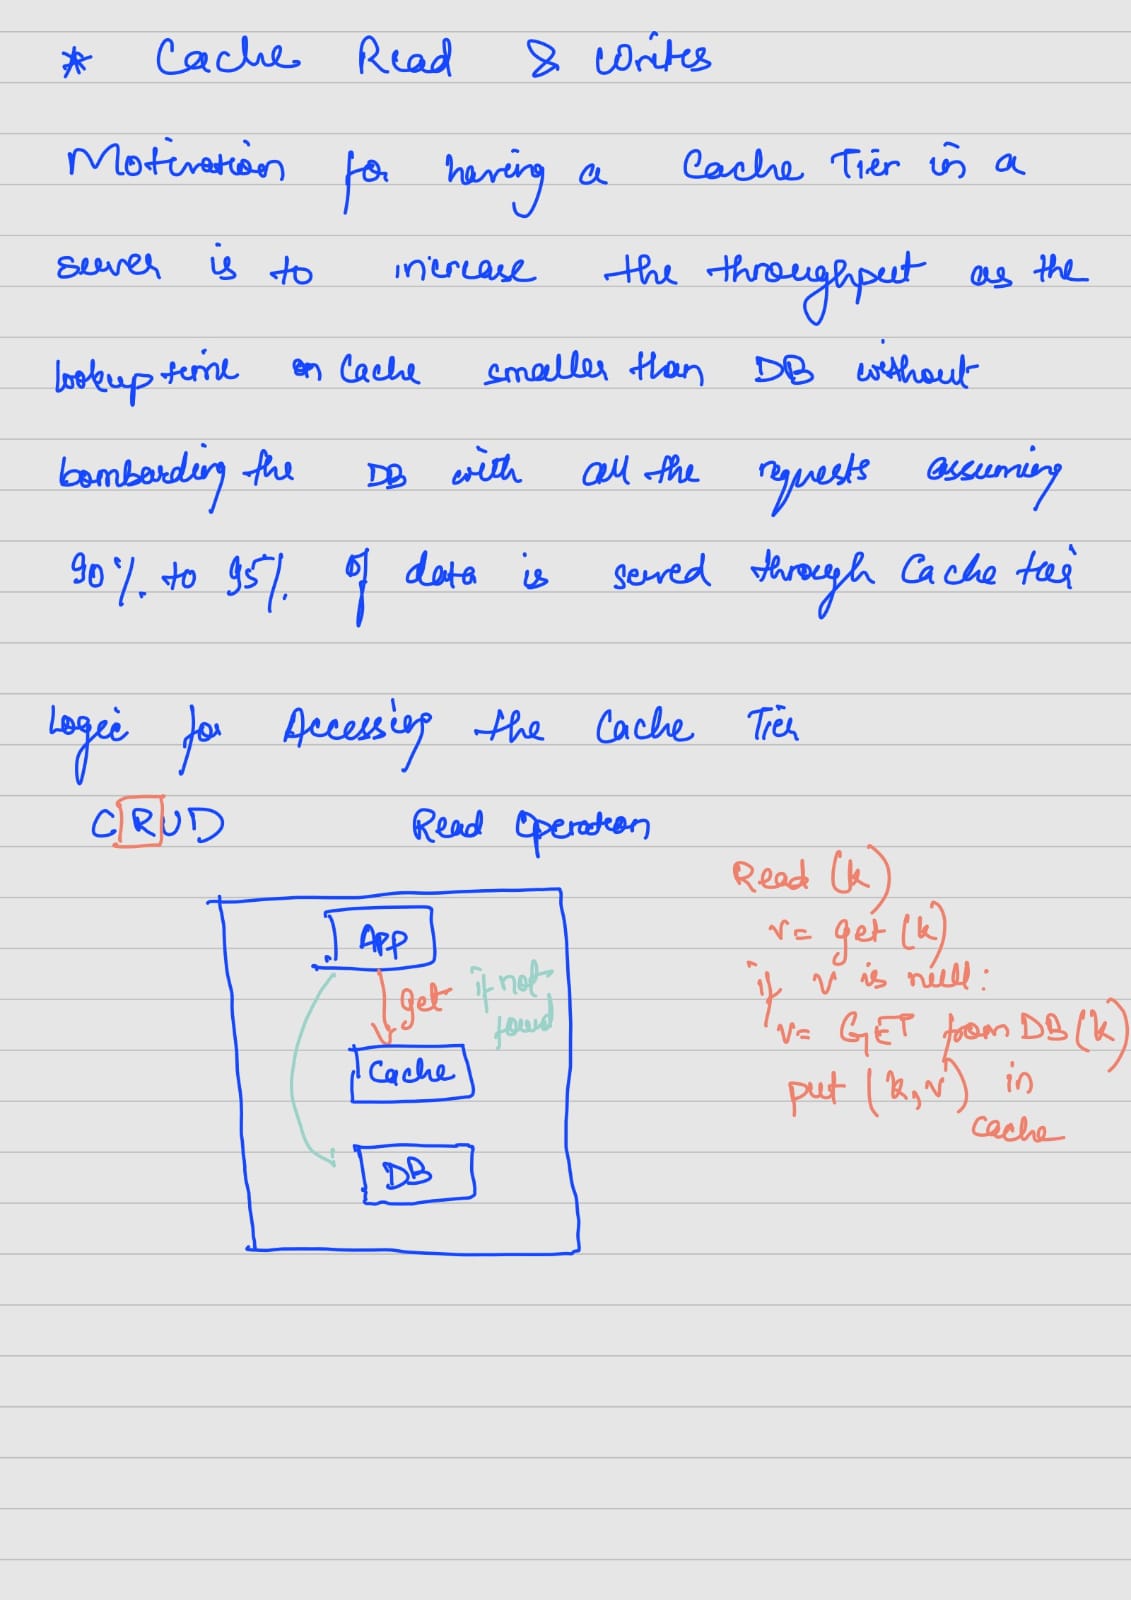 * Cache Read & Writes
Motivation for having a Cache Tier in a
server is to increase the throughput as the
lookup time on Cache smaller than DB without
bombarding the DB with all the requests assuming
90% to 95% of data is served through Cache tier
Logic for Accessing the Cache Tier
CRUD Read Operation
Read (k)
v = get (k)
if v is null:
v = GET from DB (k)
put (k, v) in
cache
App
get
if not
found
Cache
DB